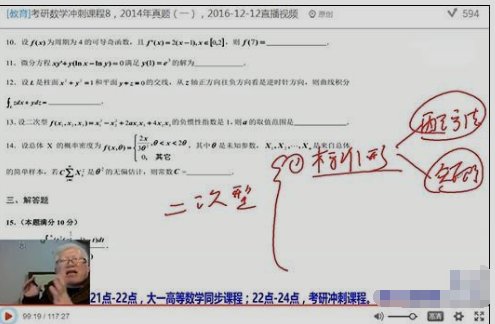 [教育]考研数学冲刺课程8，2014年真题（一），2016-12-12直播视频 原创
594
10. 设 f(x) 为周期为 4 的可导奇函数，且 f'(x)=2(x-1), x∈[0,2]，则 f(7)=
11. 微分方程 xy'+y(ln x-ln y)=0 满足 y(1)=e³ 的解为
12. 设 L 是柱面 x²+y²=1 和平面 y+z=0 的交线，从 z 轴正方向往负方向看是逆时针方向，则曲线积分
∫L zdx+ydz=
13. 设二次型 f(x₁,x₂,x₃)=x₁²-x₂²+2ax₁x₃+4x₂x₃ 的负惯性指数是 1，则 a 的取值范围是
14. 设总体 X 的概率密度为 f(x,θ)={2x/3θ², θ<x<2θ, 0, 其它，其中 θ 是未知参数，X₁,X₂,…,Xₙ 是来自总体
的简单样本，若 C∑Xᵢ² 是 θ² 的无偏估计，则常数 C=
三、解答题
15.（本题满分 10 分）
二次型
① 标准形
配方法
21点-22点，大一高等数学同步课程；22点-24点，考研冲刺课程。
99:19 / 117:27
高清